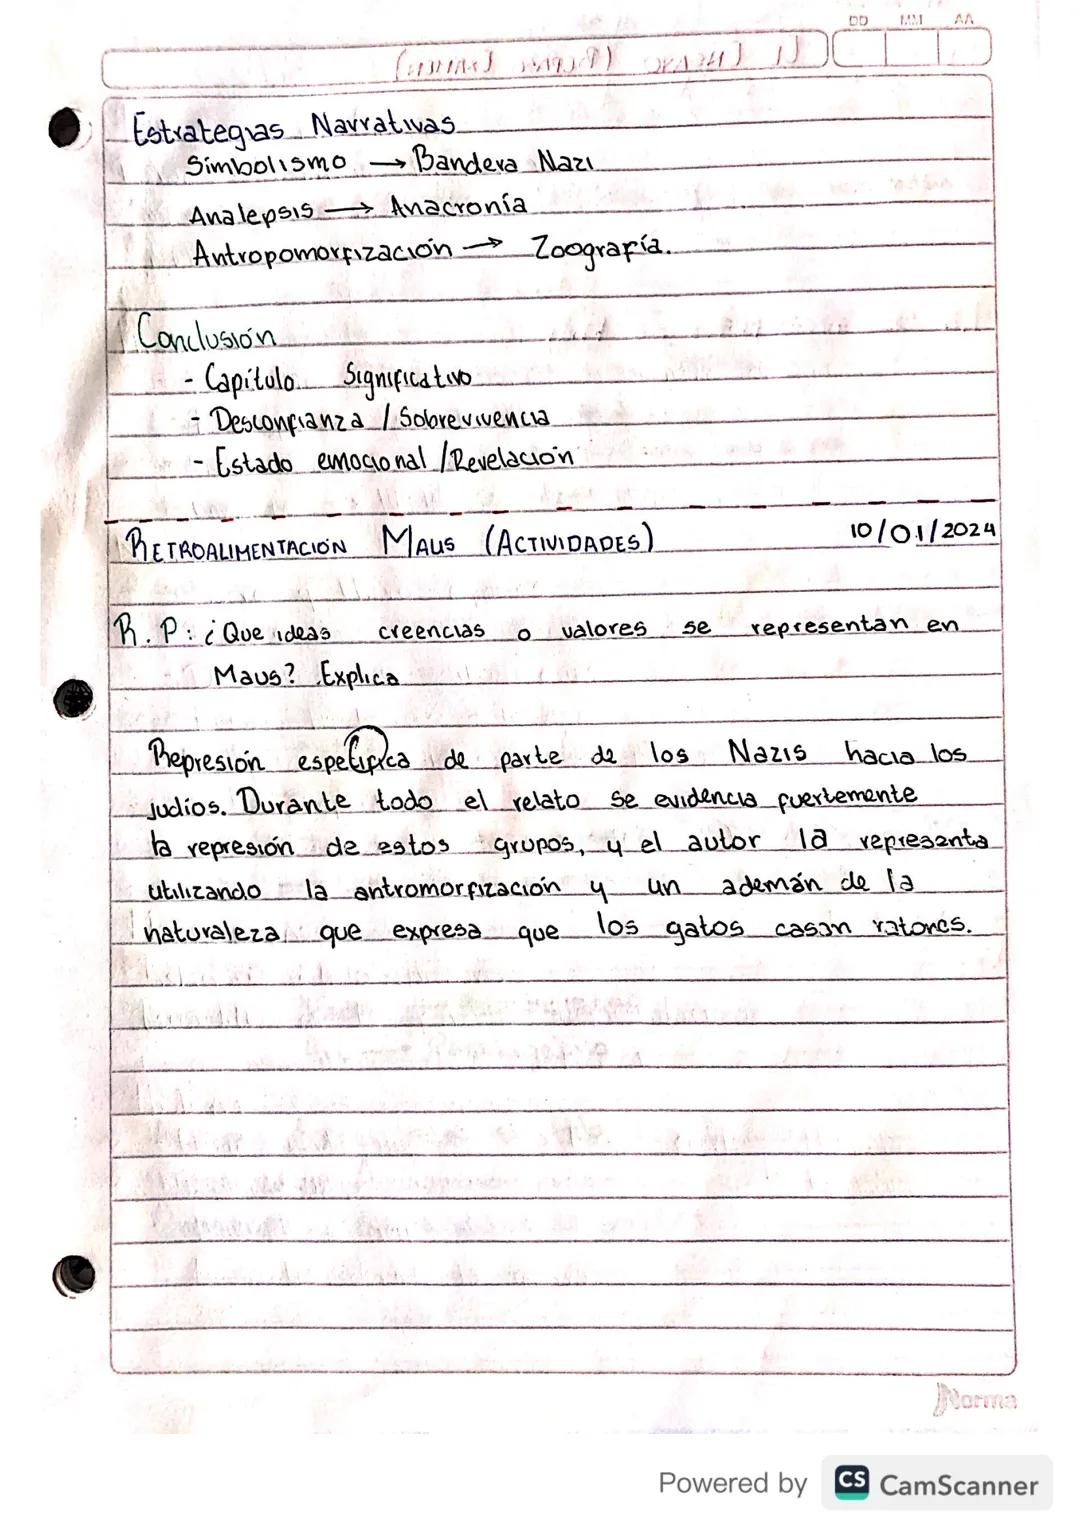 DD MM AA
Estrategias Narrativas
Simbolismo → Bandera Nazi
Analepsis → Anacronía
Antropomorfización → Zoografía.
Conclusión
- Capítulo Significativo
- Desconfianza / Sobrevivencia
- Estado emocional / Revelación
RETROALIMENTACIÓN MAUS (ACTIVIDADES) 10/01/2024
R.P: ¿Que ideas creencias o valores se representan en
Maus? Explica
Represión especifica de parte de los Nazis hacia los
judios. Durante todo el relato se evidencia fuertemente
la represión de estos grupos, y el autor la representa
utilizando la antromorfización y un ademán de la
naturaleza que expresa que los gatos casan ratones.
Norma
Powered by CS CamScanner